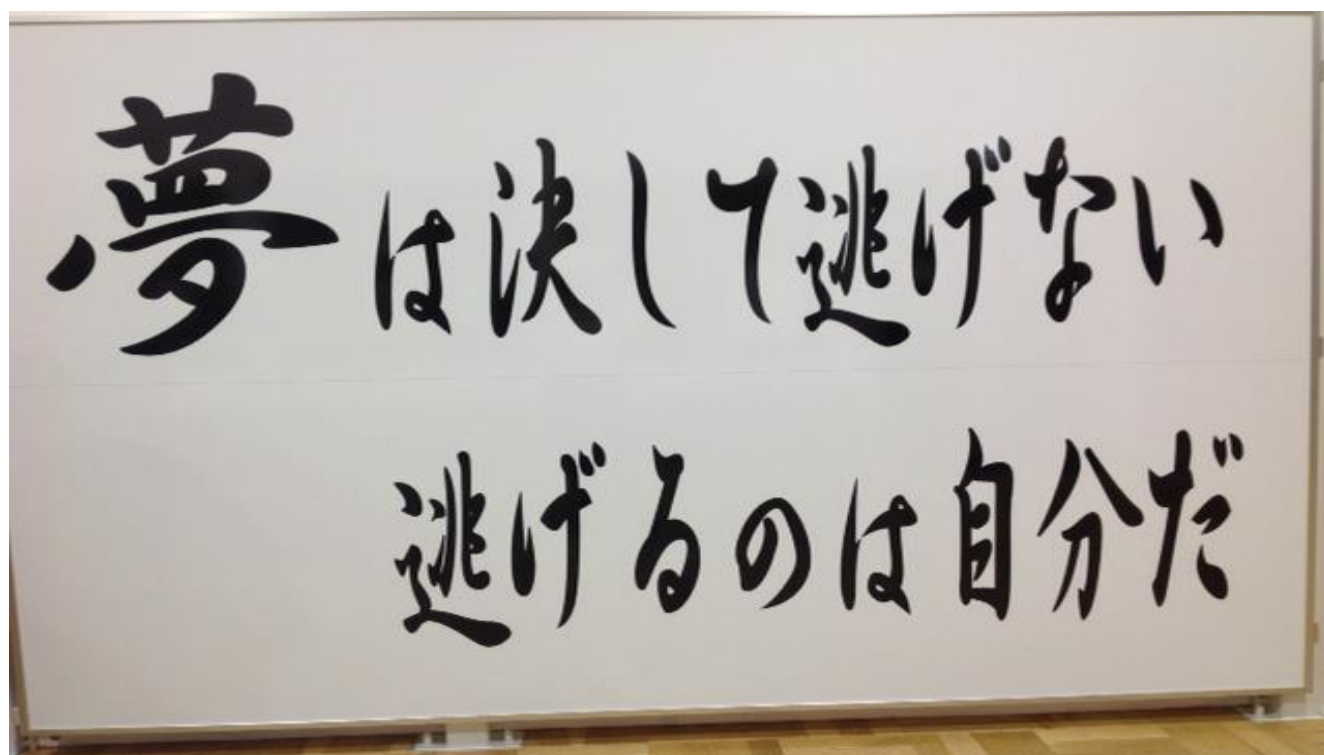 夢は決して逃げない
逃げるのは自分だ